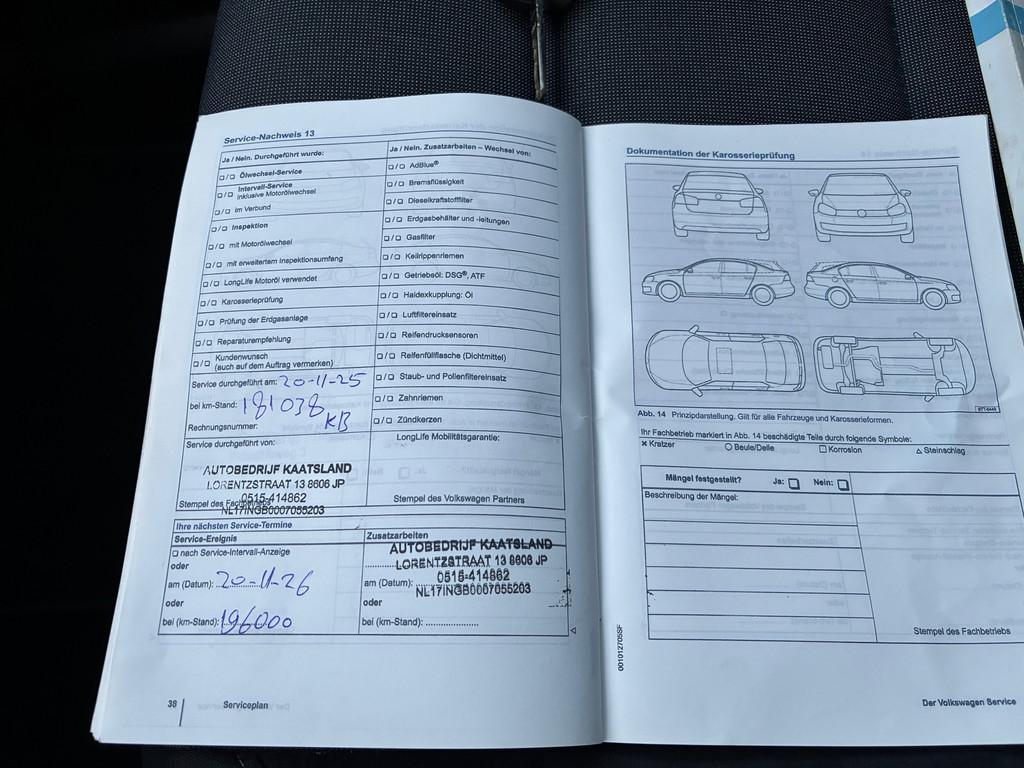 Service-Nachweis 13
Ja / Nein. Durchgeführt wurde:
□/□ Ölwechsel-Service
□/□ Intervall-Service
inklusive Motorölwechsel
□/□ im Verbund
□/□ Inspektion
□/□ mit Motorölwechsel
□/□ mit erweitertem Inspektionsumfang
□/□ LongLife Motoröl verwendet
□/□ Karosserieprüfung
□/□ Prüfung der Erdgasanlage
□/□ Reparaturempfehlung
□/□ Kundenwunsch
(auch auf dem Auftrag vermerken)
Service durchgeführt am: 20-11-25
bei km-Stand: 181038
Rechnungsnummer: KB
Service durchgeführt von:
AUTOBEDRIJF KAATSLAND
LORENTZSTRAAT 13 8606 JP
0515-414862
Stempel des Fachbetriebs
NL17INGB0007055203
Ja / Nein. Zusatzarbeiten – Wechsel von:
□/□ AdBlue®
□/□ Bremsflüssigkeit
□/□ Dieselkraftstofffilter
□/□ Erdgasbehälter und -leitungen
□/□ Gasfilter
□/□ Keilrippenriemen
□/□ Getriebeöl: DSG®, ATF
□/□ Haldexkupplung: Öl
□/□ Luftfiltereinsatz
□/□ Reifendrucksensoren
□/□ Reifenfüllflasche (Dichtmittel)
□/□ Staub- und Pollenfiltereinsatz
□/□ Zahnriemen
□/□ Zündkerzen
LongLife Mobilitätsgarantie:
Stempel des Volkswagen Partners
Ihre nächsten Service-Termine
Service-Ereignis
□ nach Service-Intervall-Anzeige
oder
am (Datum): 20-11-26
oder
bei (km-Stand): 196000
Zusatzarbeiten
AUTOBEDRIJF KAATSLAND
LORENTZSTRAAT 13 8606 JP
0515-414862
am (Datum):
NL17INGB0007055203
oder
bei (km-Stand):
38
Serviceplan
Dokumentation der Karosserieprüfung
Abb. 14 Prinzipdarstellung. Gilt für alle Fahrzeuge und Karosserieformen.
Ihr Fachbetrieb markiert in Abb. 14 beschädigte Teile durch folgende Symbole:
× Kratzer ○ Beule/Delle □ Korrosion △ Steinschlag
Mängel festgestellt? Ja: □ Nein: □
Beschreibung der Mängel:
Stempel des Fachbetriebs
001012705SF
Der Volkswagen Service